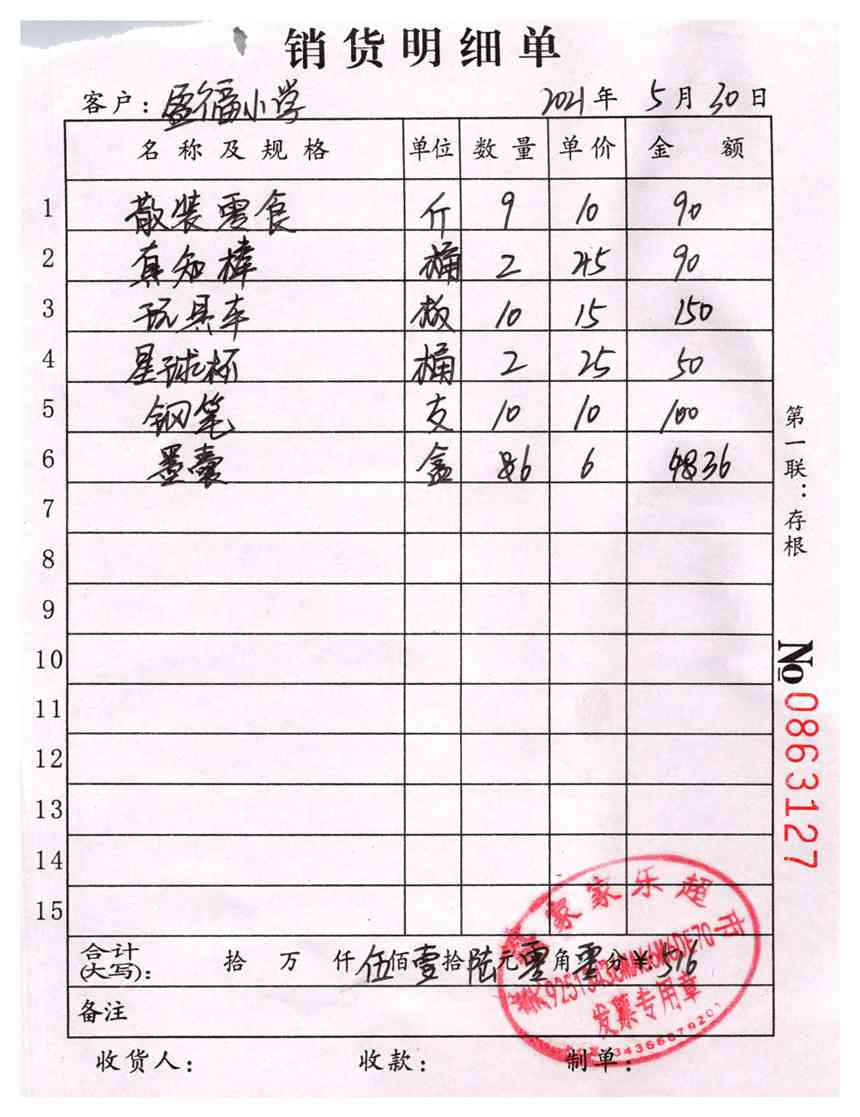 销货明细单
客户：盈福小学 2021年5月30日
名称及规格 单位 数量 单价 金额
1 散装零食 斤 9 10 90
2 真知棒 桶 2 45 90
3 玩具车 板 10 15 150
4 星球杯 桶 2 25 50
5 钢笔 支 10 10 100
6 墨囊 盒 6 6 36
7
8
9
10
11
12
13
14
15
合计(大写)： 拾 万 仟 伍佰壹拾陆元零角零分 ¥:516
备注
收货人： 收款： 制单：
第一联：存根
№0863127
家家乐超市
发票专用章